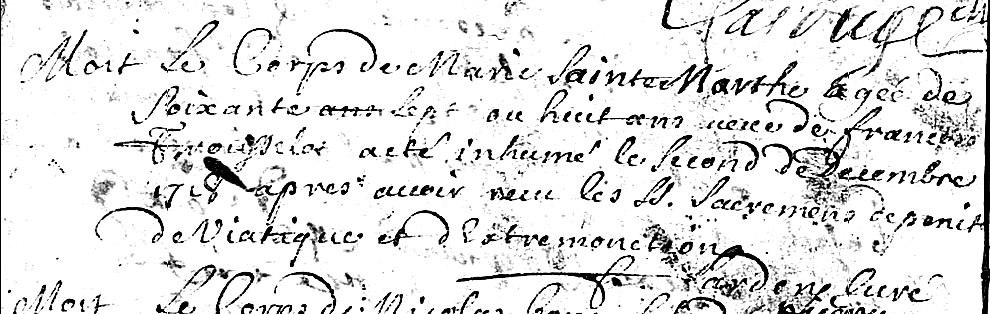 Mort Le Corps de Marie Sainte Marthe agée de
Soixante ans sept ou huit ans veue de francois
a eté inhumé le second de Decembre
1718 apres auoir receu les SS. Sacremens de penit
de Viatique et d'Extremonction
Lardene Curé
Mort Le Corps de Nicolas